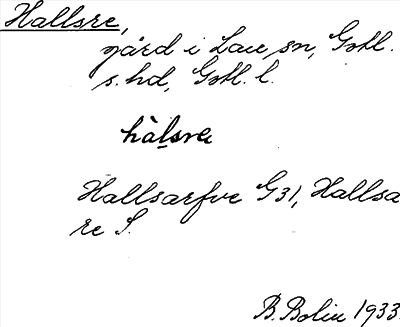 Hallsre,
gård i Lau sn, Gotl.
s. hd, Gotl. l.
hàlsre
Hallsarfve G31, Hallsa
re S.
B. Bolin 1933.